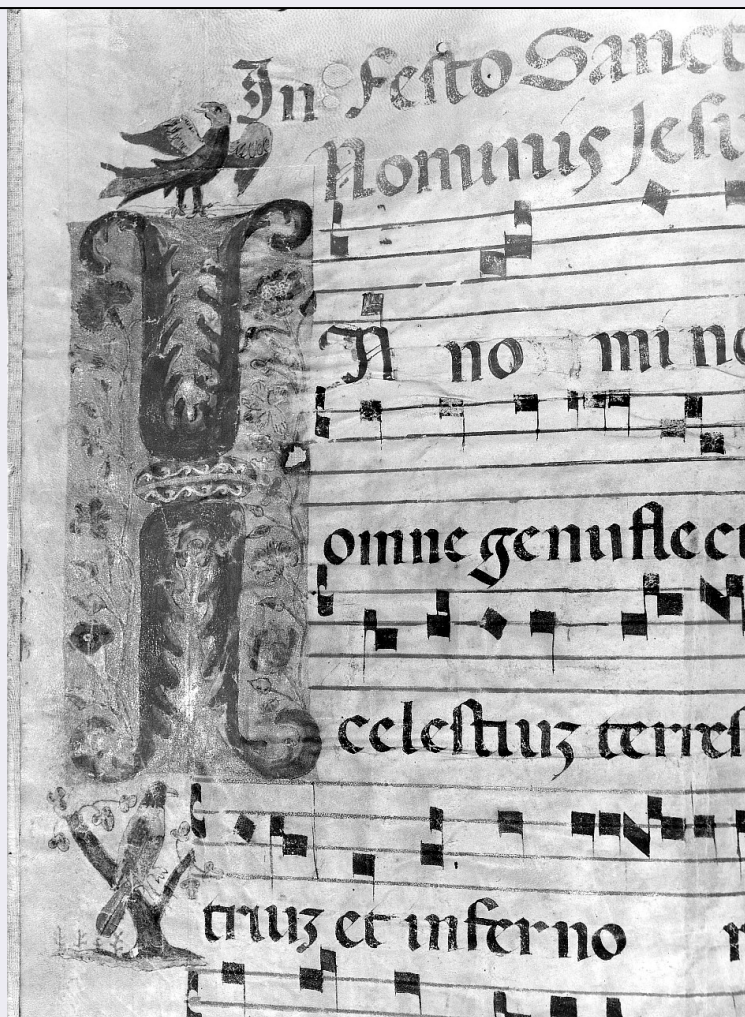 In Festo Sanct
Nominis Jesu
IN no mine
omne genuflect
celestiuz terres
triuz et inferno